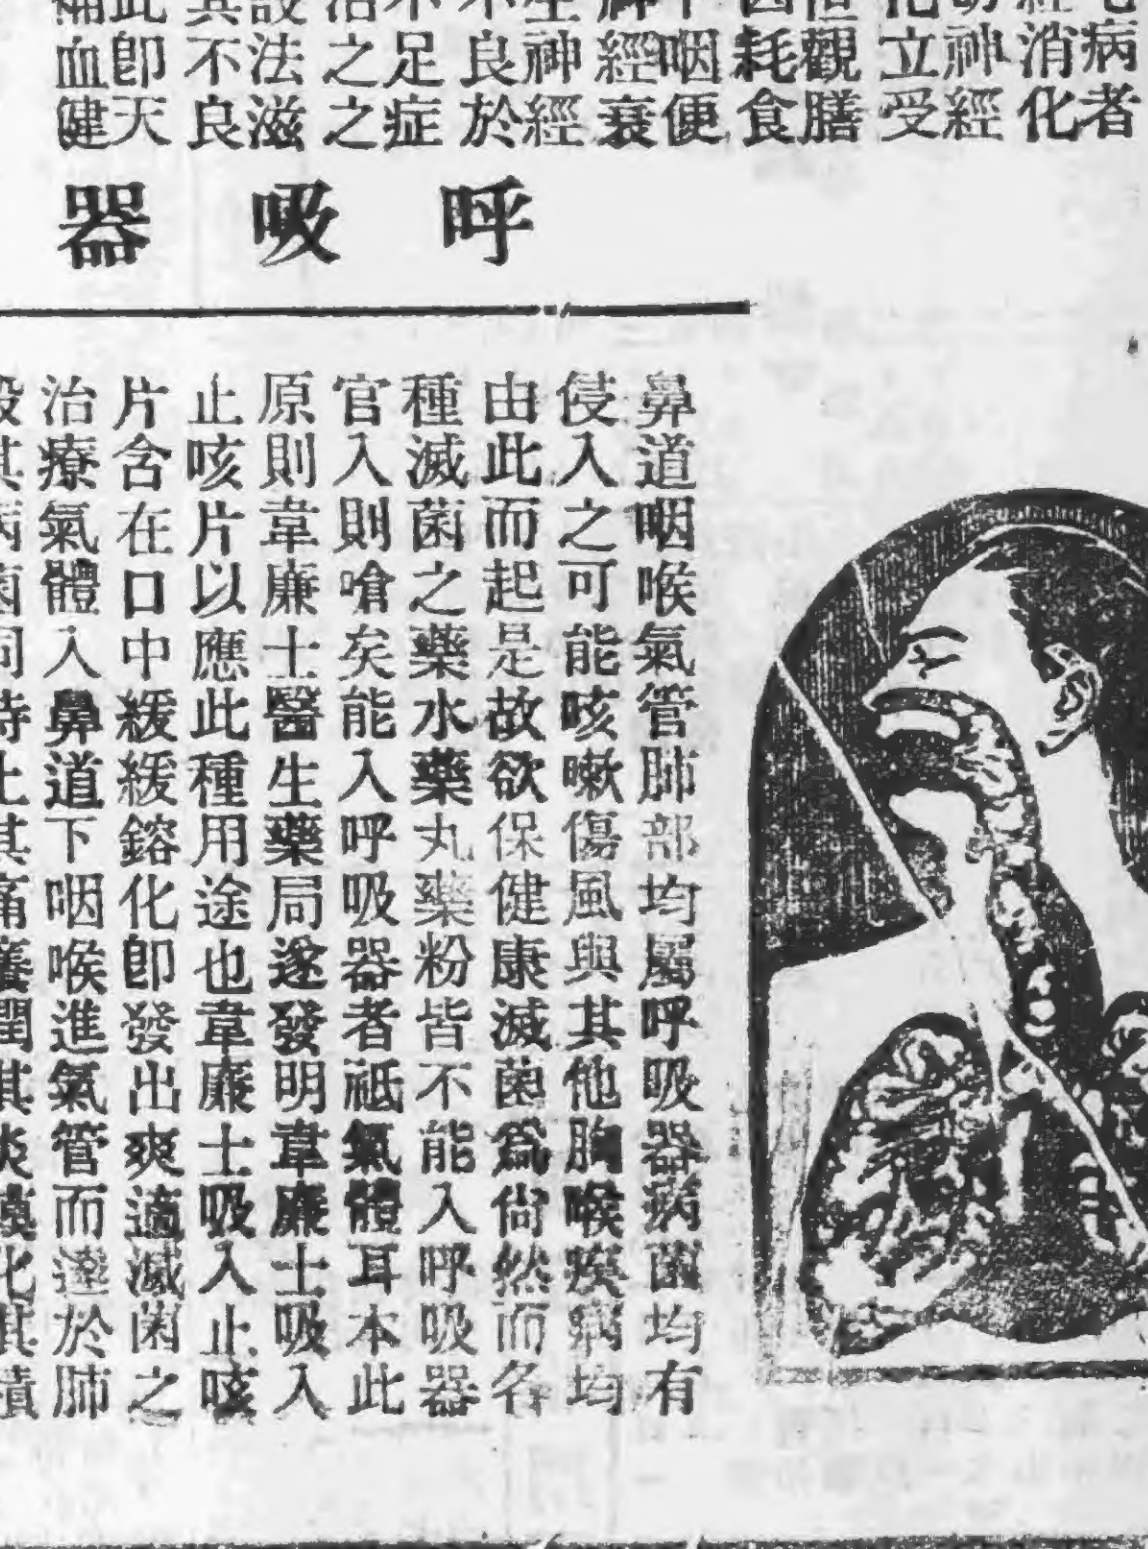 病者
消化
神經
立受
觀膳
耗食
咽便
經衰
生神經
不良於
不足症
治之之
設法滋
其不良
此卽天
補血健
呼吸器
鼻道咽喉氣管肺部均屬呼吸器病菌均有
侵入之可能咳嗽傷風與其他胸喉疾病均
由此而起是故欲保健康滅菌爲尙然而各
種滅菌之藥水藥丸藥粉皆不能入呼吸器
官入則嗆矣能入呼吸器者祗氣體耳本此
原則韋廉士醫生藥局遂發明韋廉士吸入
止咳片以應此種用途也韋廉士吸入止咳
片含在口中緩緩鎔化卽發出爽適滅菌之
治療氣體入鼻道下咽喉進氣管而達於肺
殺其病菌同時止其痛癢潤其化其積